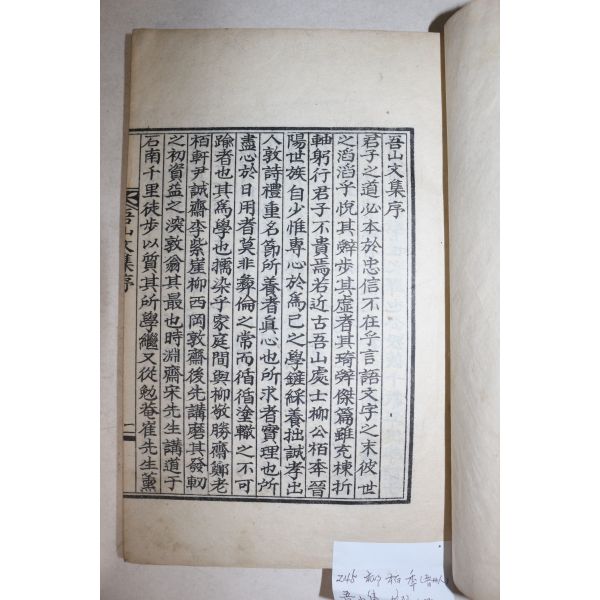 吾山文集序
君子之道必本於忠信不在乎言語文字之末彼世
之滔滔乎悅其辭步其虛者其琦辭傑篇雖充棟折
軸躬行君子不貴焉若近古吾山處士柳公栢秊晉
陽世族自少惟專心於為己之學鏟綵養拙誠孝出
人敦詩禮重名節所養者真心也所求者實理也所
盡心於日用者莫非彝倫之常而循循塗轍之不可
踰者也其為學也擩染乎家庭間與柳敬勝齋鄭老
栢軒尹誠齋李紫崖柳西岡敦齋後先講磨其發軔
之初資益之深敦翁其最也時淵齋宋先生講道于
石南千里徒步以質其所學繼又從勉菴崔先生薰
吾山文集序
一
2145 柳栢秊(晋州人)